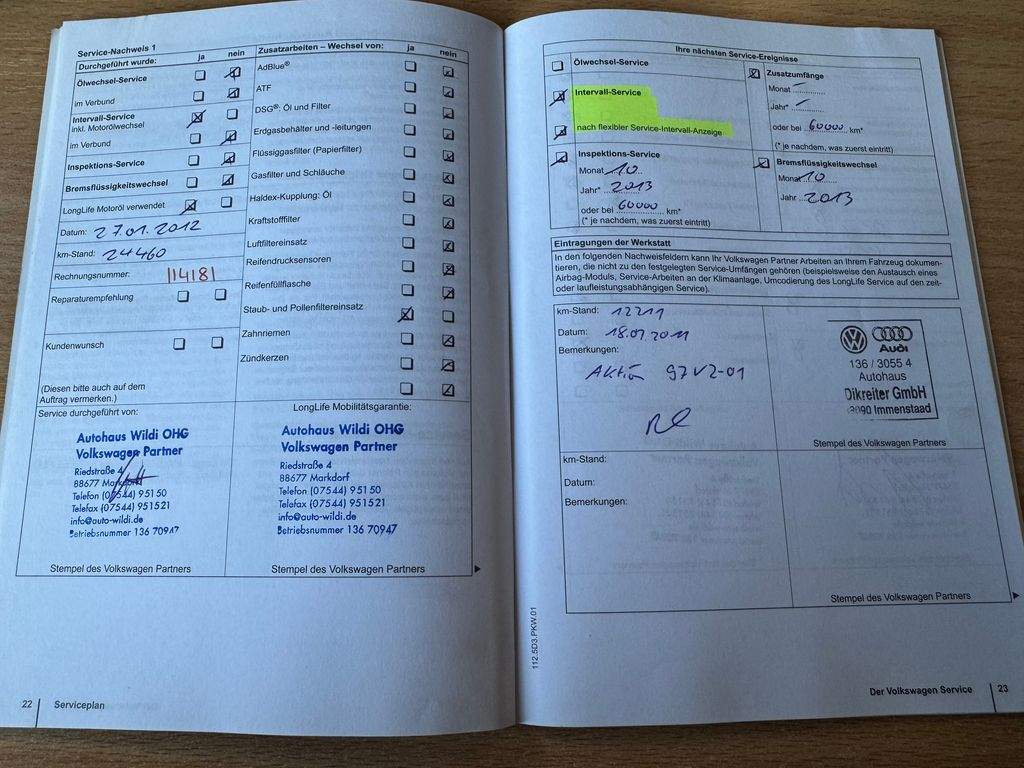 Service-Nachweis 1
Durchgeführt wurde: ja nein
Ölwechsel-Service
im Verbund
Intervall-Service
inkl. Motorölwechsel
im Verbund
Inspektions-Service
Bremsflüssigkeitswechsel
LongLife Motoröl verwendet
Datum: 27.01.2012
km-Stand: 24460
Rechnungsnummer: 114181
Reparaturempfehlung
Kundenwunsch
(Diesen bitte auch auf dem
Auftrag vermerken.)
Zusatzarbeiten – Wechsel von: ja nein
AdBlue®
ATF
DSG®: Öl und Filter
Erdgasbehälter und -leitungen
Flüssiggasfilter (Papierfilter)
Gasfilter und Schläuche
Haldex-Kupplung: Öl
Kraftstofffilter
Luftfiltereinsatz
Reifendrucksensoren
Reifenfüllflasche
Staub- und Pollenfiltereinsatz
Zahnriemen
Zündkerzen
Service durchgeführt von:
Autohaus Wildi OHG
Volkswagen Partner
Riedstraße 4
88677 Markdorf
Telefon (07544) 951 50
Telefax (07544) 951521
info@auto-wildi.de
Betriebsnummer 136 70947
Stempel des Volkswagen Partners
LongLife Mobilitätsgarantie:
Autohaus Wildi OHG
Volkswagen Partner
Riedstraße 4
88677 Markdorf
Telefon (07544) 951 50
Telefax (07544) 951521
info@auto-wildi.de
Betriebsnummer 136 70947
Stempel des Volkswagen Partners
22 Serviceplan
Ihre nächsten Service-Ereignisse
Ölwechsel-Service
Intervall-Service
nach flexibler Service-Intervall-Anzeige
Zusatzumfänge
Monat –
Jahr* –
oder bei 60000 km*
(* je nachdem, was zuerst eintritt)
Inspektions-Service
Monat 10
Jahr* 2013
oder bei 60000 km*
(* je nachdem, was zuerst eintritt)
Bremsflüssigkeitswechsel
Monat 10
Jahr 2013
Eintragungen der Werkstatt
In den folgenden Nachweisfeldern kann Ihr Volkswagen Partner Arbeiten an Ihrem Fahrzeug dokumen-
tieren, die nicht zu den festgelegten Service-Umfängen gehören (beispielsweise den Austausch eines
Airbag-Moduls, Service-Arbeiten an der Klimaanlage, Umcodierung des LongLife Service auf den zeit-
oder laufleistungsabhängigen Service).
km-Stand: 12211
Datum: 18.07.2011
Bemerkungen:
Aktion 97V2-01
Audi
136 / 3055 4
Autohaus
Dikreiter GmbH
Immenstaad
Stempel des Volkswagen Partners
km-Stand:
Datum:
Bemerkungen:
Stempel des Volkswagen Partners
112.5D3.PKW.01
Der Volkswagen Service 23